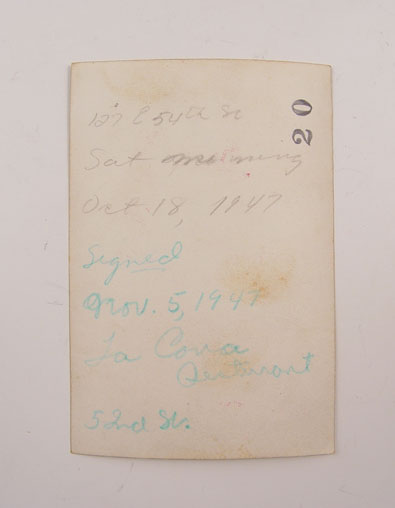 20
127 E 54th St
Sat. morning
Oct. 18, 1947
Signed
Nov. 5, 1947
La Cova
52nd St.